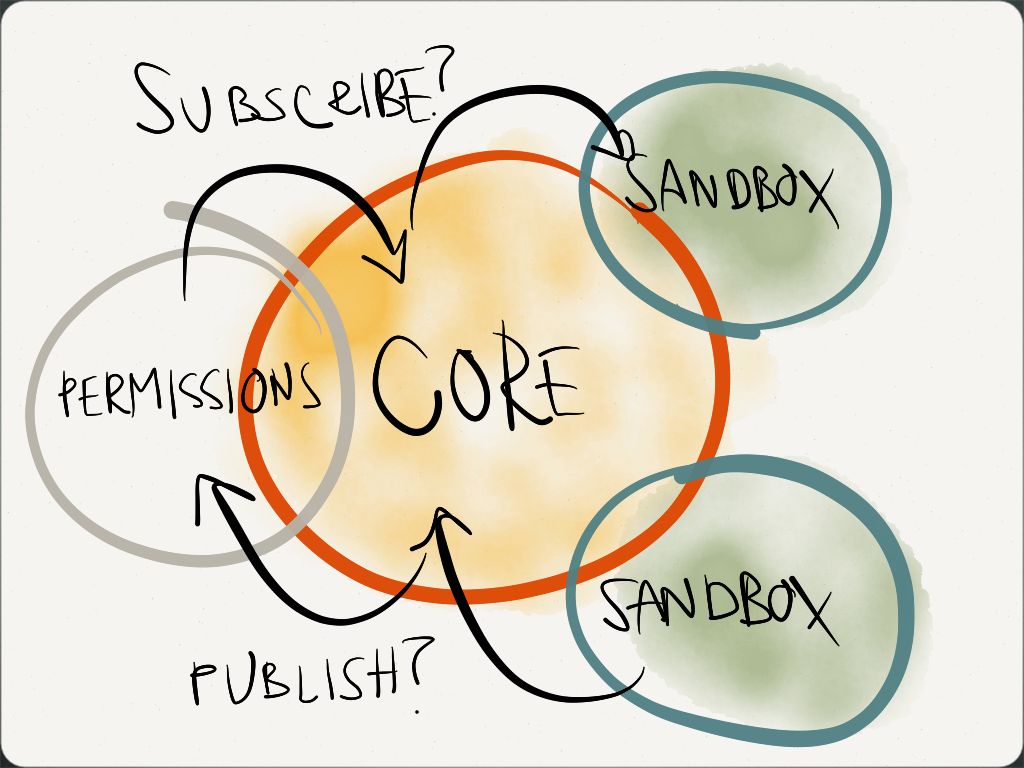 SUBSCRIBE?
SANDBOX
PERMISSIONS
CORE
SANDBOX
PUBLISH?